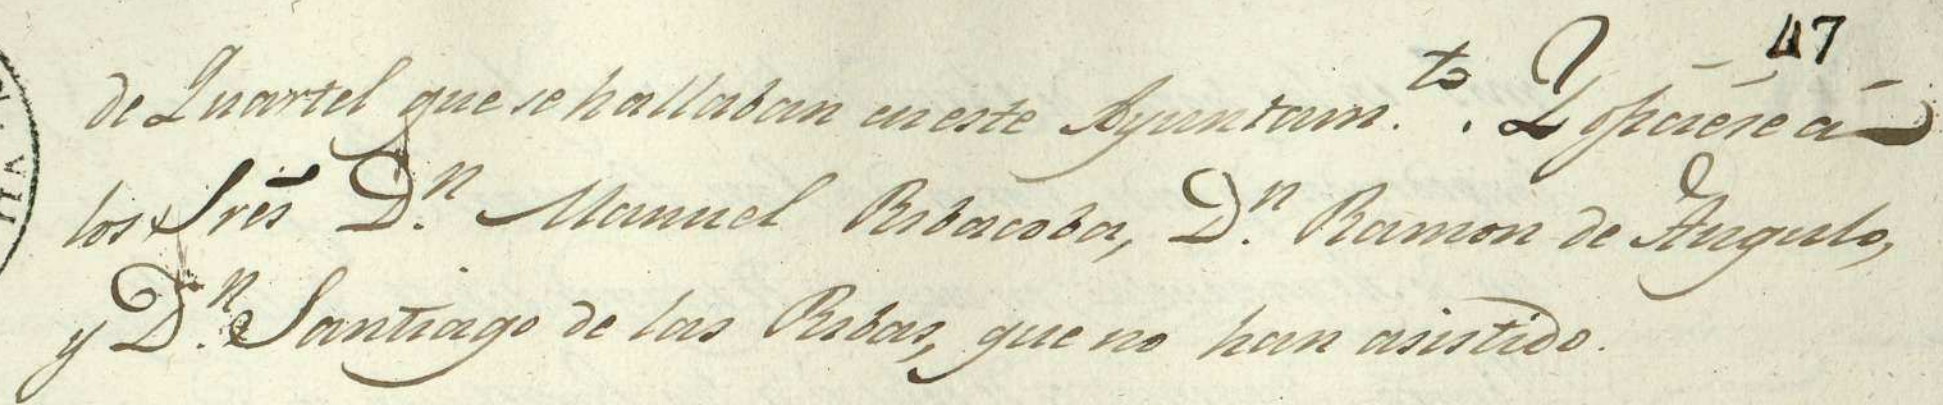 47
de Quartel que se hallaban en este Ayuntam.to. Y
los Sres D.n Manuel Ribacoba, D.n Ramon de Angulo,
y D.n Santiago de las Ribas, que no han asistido.